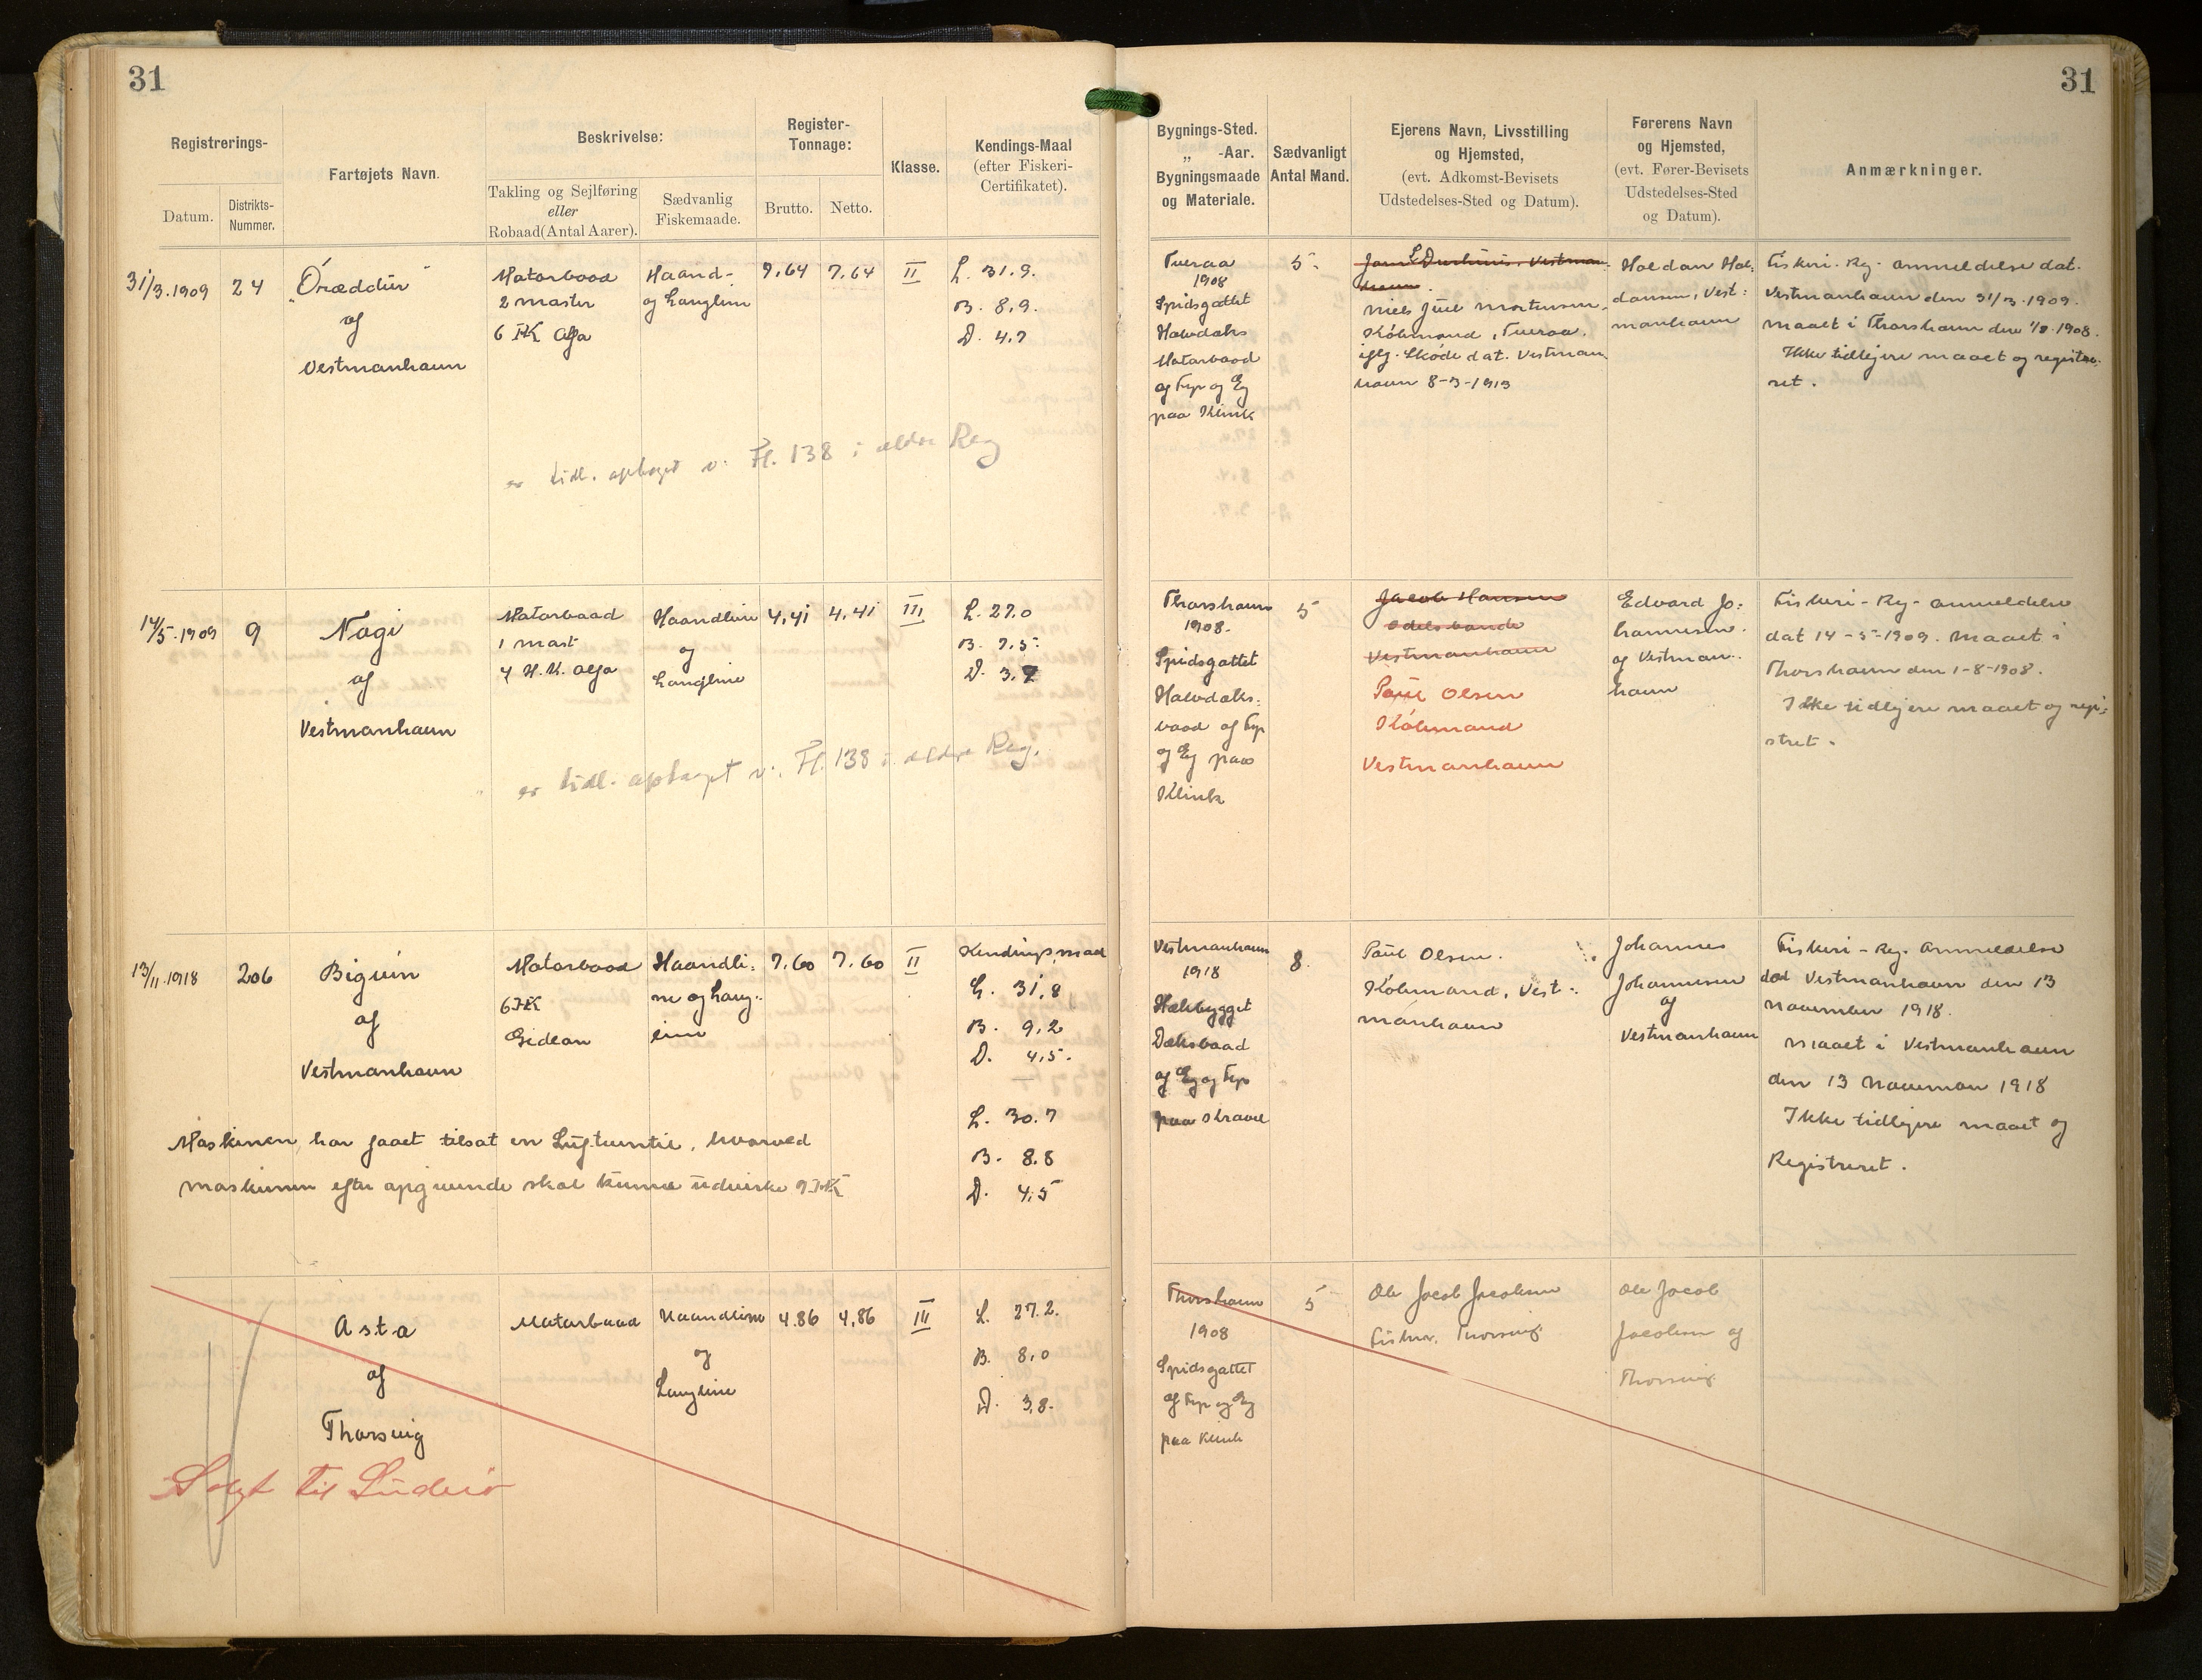 31
31
Registrerings-
Datum.
Distrikts-
Nummer.
Fartøjets Navn.
Beskrivelse:
Takling og Sejlføring
eller
Robaad (Antal Aarer).
Sædvanlig
Fiskemaade.
Register-
Tonnage:
Brutto.
Netto.
Klasse.
Kendings-Maal
(efter Fiskeri-
Certifikatet).
Bygnings-Sted.
„ -Aar.
Bygningsmaade
og Materiale.
Sædvanligt
Antal Mand.
Ejerens Navn, Livsstilling
og Hjemsted,
(evt. Adkomst-Bevisets
Udstedelses-Sted og Datum).
Førerens Navn
og Hjemsted,
(evt. Fører-Bevisets
Udstedelses-Sted
og Datum).
Anmærkninger.
31/3.1909
24
„Óræddur"
af
Vestmanhavn
Motorbaad
2 master
6 HK Alfa
Haand-
og Langline
7,64
7,64
II
L. 31.9.
B. 8,9.
D. 4.7
er tidl. optaget v. Fl. 138 i ældre Reg
Tveraa
1908
Spidsgattet
Halvdæks
Motorbaad
af Fyr og Eg
paa Klink
5
Vestman-
havn.
Niels Juel Mortensen,
Købmand, Tveraa.
iflg. Skøde dat. Vestman-
havn 8-3-1913
Haldan Hal-
dansen, Vest-
manhavn
Fiskeri-Reg- anmeldelse dat.
Vestmanhavn den 31/3-1909.
maalt i Thorshavn den 1/8-1908.
Ikke tidligere maalt og registre-
ret.
14/5.1909
9
Nogi
af
Vestmanhavn
Motorbaad
1 mast
4 H.K. Alfa
Haandline
og
Langline
4,41
4,41
III
L. 27.0
B. 7.5
D. 3.7
er tidl. optaget v. Fl. 138 i ældre Reg.
Thorshavn
1908.
Spidsgattet
Halvdæks-
baad af Fyr
og Eg paa
Klink
5
Jacob Hansen
Odelsbonde
Vestmanhavn
Poul Olsen
Købmand
Vestmanhavn
Edvard Jo-
hannesen
af Vestman-
havn
Fiskeri-Reg- anmeldelse
dat 14-5-1909. Maalt i
Thorshavn den 1-8-1908.
Ikke tidligere maalt og regi-
stret.
13/11.1918
206
Biguin
af
Vestmanhavn
Motorbaad
6 HK
Gideon
Haandli-
ne og Lang-
line
7,60
7,60
II
Kendingsmaal
L. 31,8
B. 9,2
D. 4,5.
L. 30.7
B. 8.8
D. 4,5
Maskinen har faaet tilsat en Luftventil, hvorved
maskinen efter opgivende skal kunne udvirke 9 HK
Vestmanhavn
1918
Hækbygget
Dæksbaad
af Eg og Fyr
paa Kravel
8
Poul Olsen.
Købmand, Vest-
manhavn
Johannes
Johannesen
af
Vestmanhavn
Fiskeri-Reg. Anmeldelse
dat Vestmanhavn den 13
november 1918.
maalt i Vestmanhavn
den 13 November 1918
Ikke tidligere maalt og
Registreret.
Asta
af
Thorsvig
Solgt til Suderø
Motorbaad
Haandline
og
Langline
4.86
4,86
III
L. 27.2.
B. 8,0
D. 3,8.
Thorshavn
1908
Spidsgattet
af Fyr og Eg
paa Klink
5
Ole Jacob Jacobsen
Fisker, Thorsvig
Ole Jacob
Jacobsen af
Thorsvig